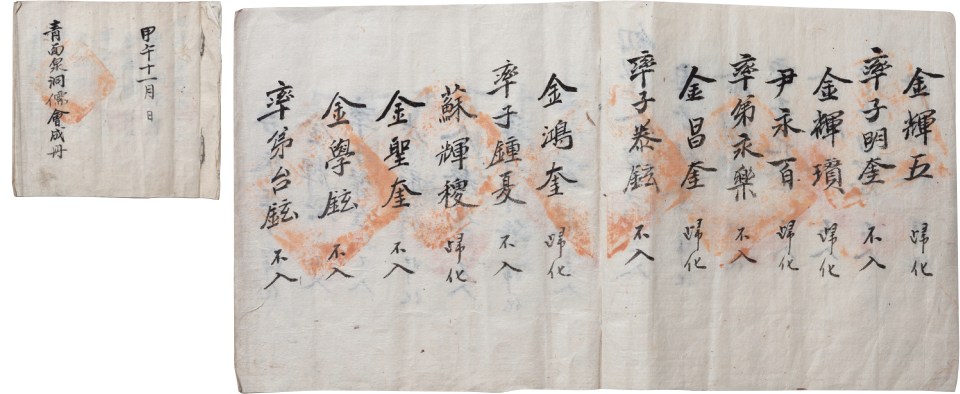 甲午十一月 日
青面泉洞儒會成冊
金輝五 歸化
率子明奎 不入
金輝瓚 歸化
尹永百 歸化
率弟永樂 不入
金昌奎 歸化
率子泰鉉 不入
金鴻奎 歸化
率子鍾憂 不入
蘇輝稷 歸化
金聖奎 不入
金學鉉 不入
率弟台鉉 不入